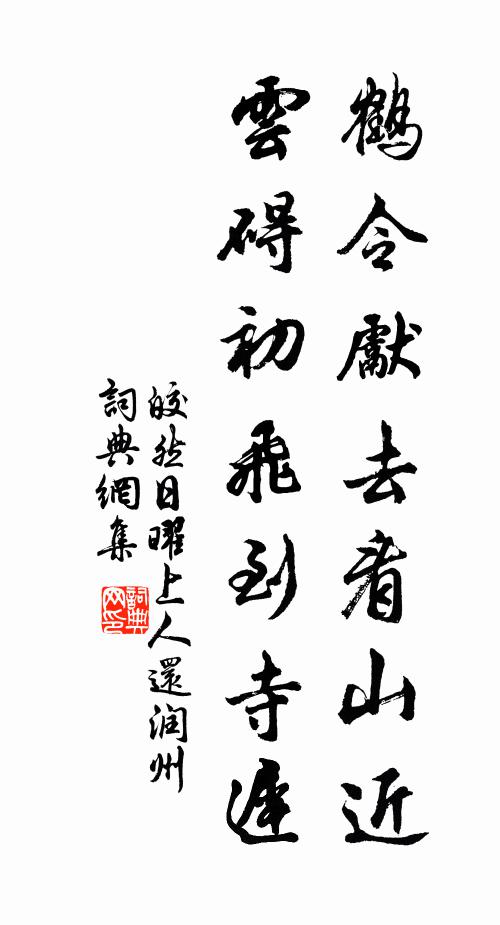 鶴令獻去看山近
雲碍初飛到寺遲
皎然日曜上人還潤州
詞典網集
詞典网印